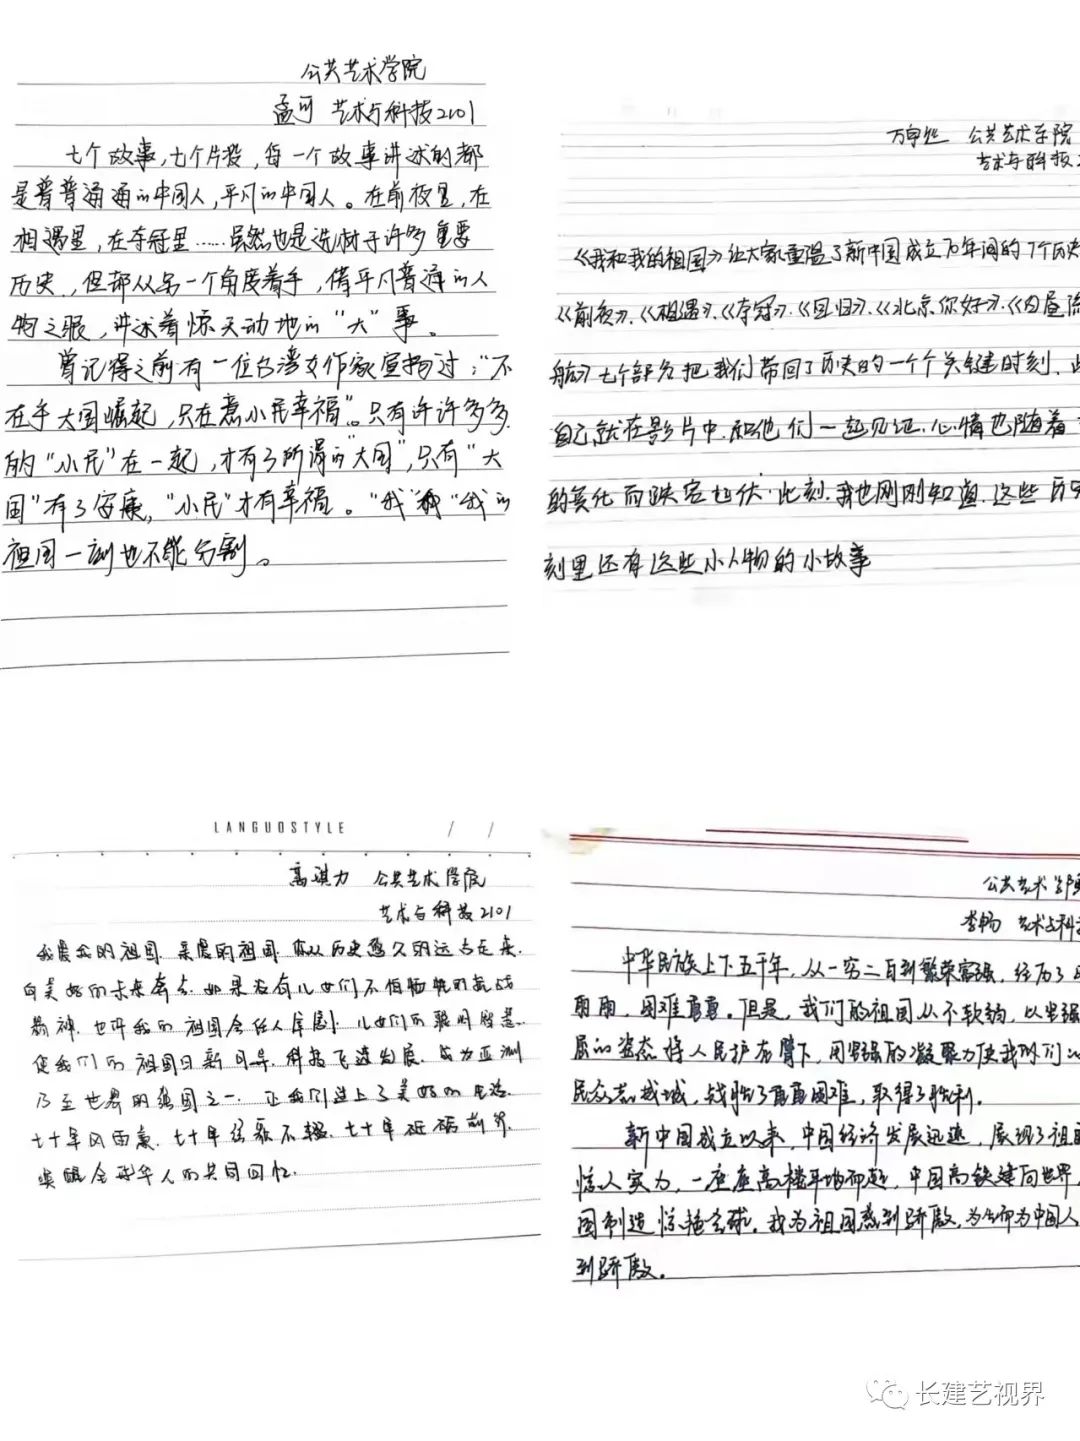 公共艺术学院
孟可 艺术与科技2101
七个故事,七个片段,每一个故事讲述的都
是普普通通的中国人,平凡的中国人。在前夜里,在
相遇里,在夺冠里……虽然也是选材于许多重要
历史,但却从另一个角度着手,借平凡普通的人
物之眼,讲述着惊天动地的“大”事。
曾记得之前有一位台湾女作家宣扬过:“不
在乎大国崛起,只在意小民幸福”。只有许许多多
的“小民”在一起,才有了所谓的“大国”,只有“大
国”有了安康,“小民”才有幸福。“我”和“我的
祖国一刻也不能分割。
公共艺术学院
艺术与科技2
《我和我的祖国》让大家重温了新中国成立70年间的7个历
《前夜》.《相遇》.《夺冠》.《回归》.《北京你好》.《白昼流
航》七个部分把我们带回了历史的一个个关键时刻.
自己就在影片中.和他们一起见证.心情也随着
的变化而跌宕起伏.此刻.我也刚刚知道.这些历
刻里还有这些小人物的小故事
LANGUOSTYLE / /
高琪力 公共艺术学院
艺术与科技2101
我爱我的祖国.亲爱的祖国.你从历史悠久的远古走来.
向美好的未来奔去.如果没有儿女们不怕牺牲的抗战
精神.也许我的祖国会任人宰割.儿女们的聪明智慧.
使我们的祖国日新月异.科技飞速发展.成为亚洲
乃至世界的强国之一.让我们过上了美好的生活.
七十年风雨兼.七十年弦歌不辍.七十年砥砺前行.
唤醒全球华人的共同回忆.
公共艺术学院
李畅 艺术与科
中华民族上下五千年,从一穷二白到繁荣富强,经历了
雨雨,困难重重。但是,我们的祖国从不软弱,以坚强
屈的姿态将人民护在臂下,用坚强的凝聚力使我们们
民众志成城,战胜了重重困难,取得了胜利。
新中国成立以来,中国经济发展迅速,展现了祖国
惊人实力,一座座高楼平地而起,中国高铁建向世界,
国制造惊艳全球。我为祖国感到骄傲,为生而为中国人
到骄傲。
长建艺视界